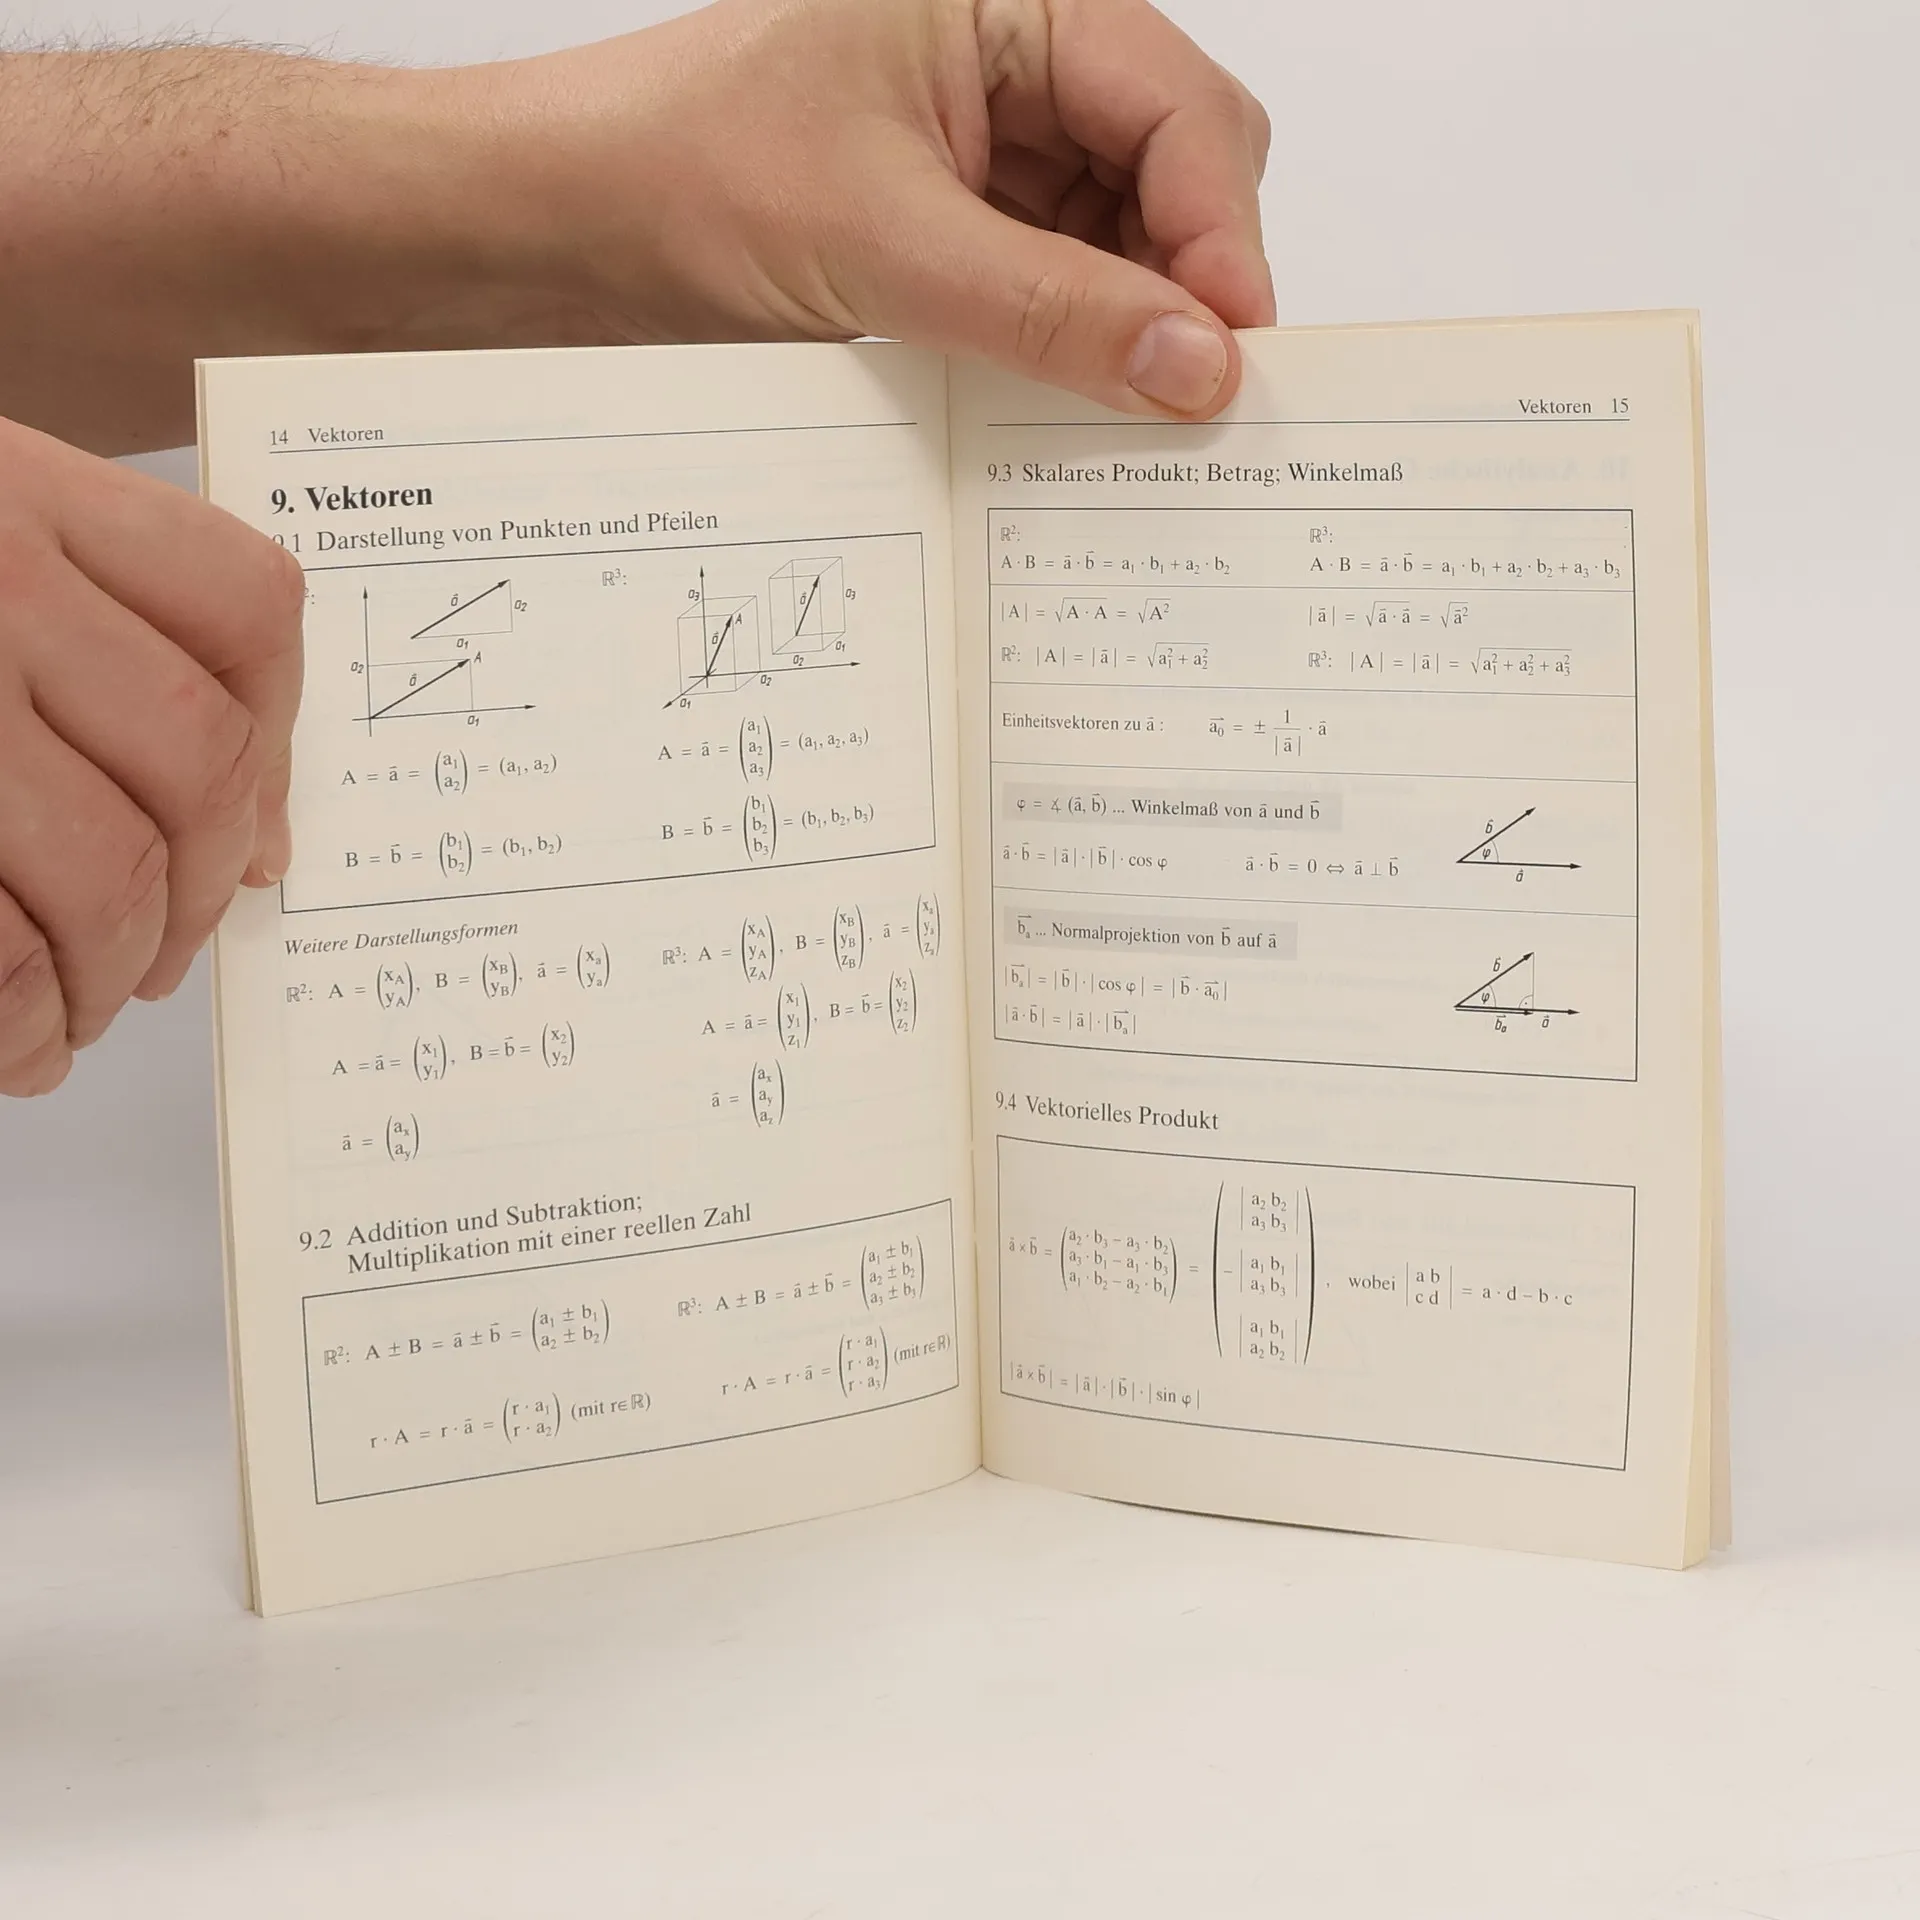 14 Vektoren
9. Vektoren
.1 Darstellung von Punkten und Pfeilen
ℝ³:
a⃗ a₂ a₁
a₂ a⃗ A a₁
a₃ a⃗ A a₂ a₁
a⃗ a₃ a₂ a₁
A = a⃗ = (a₁ a₂) = (a₁, a₂)
A = a⃗ = (a₁ a₂ a₃) = (a₁, a₂, a₃)
B = b⃗ = (b₁ b₂) = (b₁, b₂)
B = b⃗ = (b₁ b₂ b₃) = (b₁, b₂, b₃)
Weitere Darstellungsformen
ℝ²: A = (x_A y_A), B = (x_B y_B), a⃗ = (x_a y_a)
ℝ³: A = (x_A y_A z_A), B = (x_B y_B z_B), a⃗ = (x_a y_a z_a)
A = a⃗ = (x₁ y₁), B = b⃗ = (x₂ y₂)
A = a⃗ = (x₁ y₁ z₁), B = b⃗ = (x₂ y₂ z₂)
a⃗ = (a_x a_y)
a⃗ = (a_x a_y a_z)
9.2 Addition und Subtraktion;
Multiplikation mit einer reellen Zahl
ℝ²: A ± B = a⃗ ± b⃗ = (a₁ ± b₁ a₂ ± b₂)
ℝ³: A ± B = a⃗ ± b⃗ = (a₁ ± b₁ a₂ ± b₂ a₃ ± b₃)
r · A = r · a⃗ = (r · a₁ r · a₂) (mit r∈ℝ)
r · A = r · a⃗ = (r · a₁ r · a₂ r · a₃) (mit r∈ℝ)
Vektoren 15
9.3 Skalares Produkt; Betrag; Winkelmaß
ℝ²: ℝ³:
A · B = a⃗ · b⃗ = a₁ · b₁ + a₂ · b₂
A · B = a⃗ · b⃗ = a₁ · b₁ + a₂ · b₂ + a₃ · b₃
|A| = √(A · A) = √(A²)
|a⃗| = √(a⃗ · a⃗) = √(a⃗²)
ℝ²: |A| = |a⃗| = √(a₁² + a₂²)
ℝ³: |A| = |a⃗| = √(a₁² + a₂² + a₃²)
Einheitsvektoren zu a⃗ : a₀⃗ = ± 1/|a⃗| · a⃗
φ = ∡ (a⃗, b⃗) ... Winkelmaß von a⃗ und b⃗
b⃗ φ a⃗
a⃗ · b⃗ = |a⃗| · |b⃗| · cos φ
a⃗ · b⃗ = 0 ⇔ a⃗ ⊥ b⃗
b_a⃗ ... Normalprojektion von b⃗ auf a⃗
b⃗ φ b_a⃗ a⃗
|b_a⃗| = |b⃗| · |cos φ| = |b⃗ · a₀⃗|
|a⃗ · b⃗| = |a⃗| · |b_a⃗|
9.4 Vektorielles Produkt
a⃗ × b⃗ = (a₂ · b₃ − a₃ · b₂ a₃ · b₁ − a₁ · b₃ a₁ · b₂ − a₂ · b₁) = (|a₂ b₂ a₃ b₃| −|a₁ b₁ a₃ b₃| |a₁ b₁ a₂ b₂|), wobei |a b c d| = a · d − b · c
|a⃗ × b⃗| = |a⃗| · |b⃗| · |sin φ|